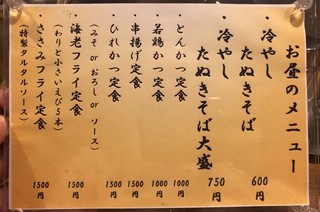 お昼のメニュー
・冷やし
たぬきそば 600円
・冷やし
たぬきそば大盛 750円
・とんかつ定食 1000円
・若鶏かつ定食 1000円
・串揚げ定食 1500円
・ひれかつ定食 1500円
(みそ or おろし or ソース)
・海老フライ定食 1500円
(わりと小さいえび5本)
・ささみフライ定食 1500円
(特製タルタルソース)